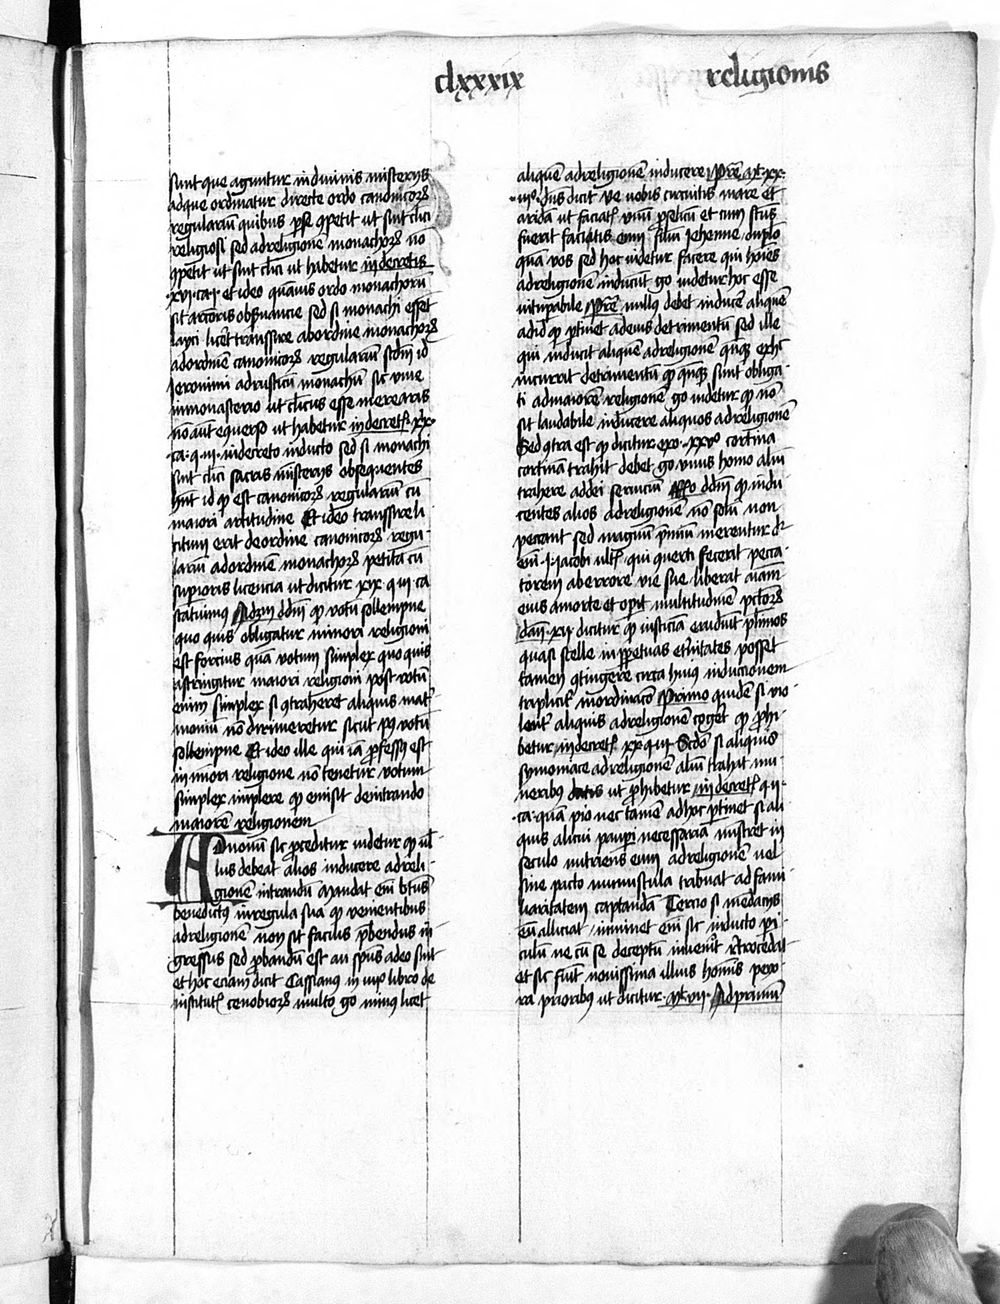 clxxxix religionis
sunt que aguntur in diuinis misterijs
adque ordinatur directe ordo canonicorꝝ
regulariū quibus ꝑ se ꝯpetit ut sint cl̄ici
religiosi sed ad religionē monachorꝝ nō
ꝯpetit ut sint cl̄ici ut habetur in decretis
·xvi·ca·i· et ideo quāuis ordo monachorū
sit arcioris obẜuancie sed si monachi essēt
layci licēt transsire ab ordine monachorꝝ
ad ordinē canonicorꝝ regulariū scdm̄ id
Jeronimi ad rusticū monachū sic viue
in monasterio ut cl̄icus esse merearis
nō aūt e querso ut habetur in decret̄ xvi
ca· q·iii· in decreto inducto sed si monachi
sint cl̄ici sacris misterijs obsequentes
hn̄t id qꝫ est canonicorꝝ regulariū cū
maiori artitudine Et ideo transsire li
citum erit de ordine canonicorꝝ regu
lariū ad ordinē monachorꝝ petita cū
suꝑioris licencia ut dicitur xix· q iii ca
statuimꝰ Ad 2m dd̄m qꝫ votū sollempne
quo quis obligatur minori religioni
est forcius quā votum simplex quo quis
astringitur maiori religioni post votū
enim simplex si ꝯtraheret aliquis mat̄
moniū nō dirimeretur sicut pꝰ votū
sollempne Et ideo ille qui iā ꝓfessꝰ est
in minori religione nō tenetur votum
simplex implere qꝫ emisit de intrando
maiorē religionem
Ad nonū sic ꝓceditur videtur qꝫ nl̄
lus debeat alios inducere ad reli
gionē intrandū Mandat em̄ btūs
benedictꝰ in regula sua qꝫ venientibus
ad religionē non sit facilis p̄bendus in
gressus sed ꝓbandū est an spūs a deo sint
et hoc eciam dicit Cassianꝰ in iiijo libro de
institut̄ cenobiorꝝ multo go minꝰ licet
aliquē ad religionē inducere Pret̄ mt· xx
·iijo· dn̄s dicit ve vobis circuitis mare et
aridā ut faciat̄ vnū ꝓselitū et cum fctūs
fuerit faciatis eum filiū Jehenne duplo
quā vos sed hoc videtur facere qui hoīes
ad religionē inducūt go videtur hoc esse
vituꝑabile Pret̄ nullus debet inducē aliquē
ad id qꝫ ꝑtinet ad eius detrimentū sed ille
qui inducit aliquē ad religionē qn̄qꝫ ex hͦ
incurrit detrimentū qꝫ qn̄qꝫ sunt obliga
ti ad maiorē religionē go videtur qꝫ nō
sit laudabile inducere aliquos ad religionē
Sed ꝯtra est qꝫ dicitur exo· xxvo cortina
cortinā trahit debet go vnus homo aliū
trahere ad dei seruiciū Rͦ dd̄m qꝫ indu
centes alios ad religionē nō solū non
peccant sed magnū p̄miū merentur dr̄
em̄· Jacobi ult̄ qui querti fecerit pecca
torem ab errore vie sue liberat aīam
eius a morte et oꝑit multitudinē pctōrꝝ
dan̄· xij dicitur qꝫ iusticiā erudiūt pl̄imos
quasi stelle in ꝑpetuas etn̄itates posset
tamen ꝯtingere circa huiꝰ inductionem
triplicit̄ inordinacō Primo quidē si vio
lent̄ aliquis ad religionē cogeret̄ qꝫ ꝓhi
betur in decret̄ xx q iii Scdō si aliquis
symoniace ad religionē aliū trahat mu
neribꝰ datis ut ꝓhibetur in decret̄ q ii
·ca· quā pio nec tamē ad hoc ꝑtinet si ali
quis alicui pauꝑi necessaria mistret in
seculo nutriens eum ad religionē vel
sine pacto munuscula tribuat ad fami
liaritatem captandā Tercio si mendacijs
eū alliciat iminet em̄ sic inducto ꝑi
culū ne cū se deceptū inuen̄it retrocedat
et sic fiūt nouissima illius homīs peio
ra prioribꝰ ut dicitur· mt· xii· Ad primū